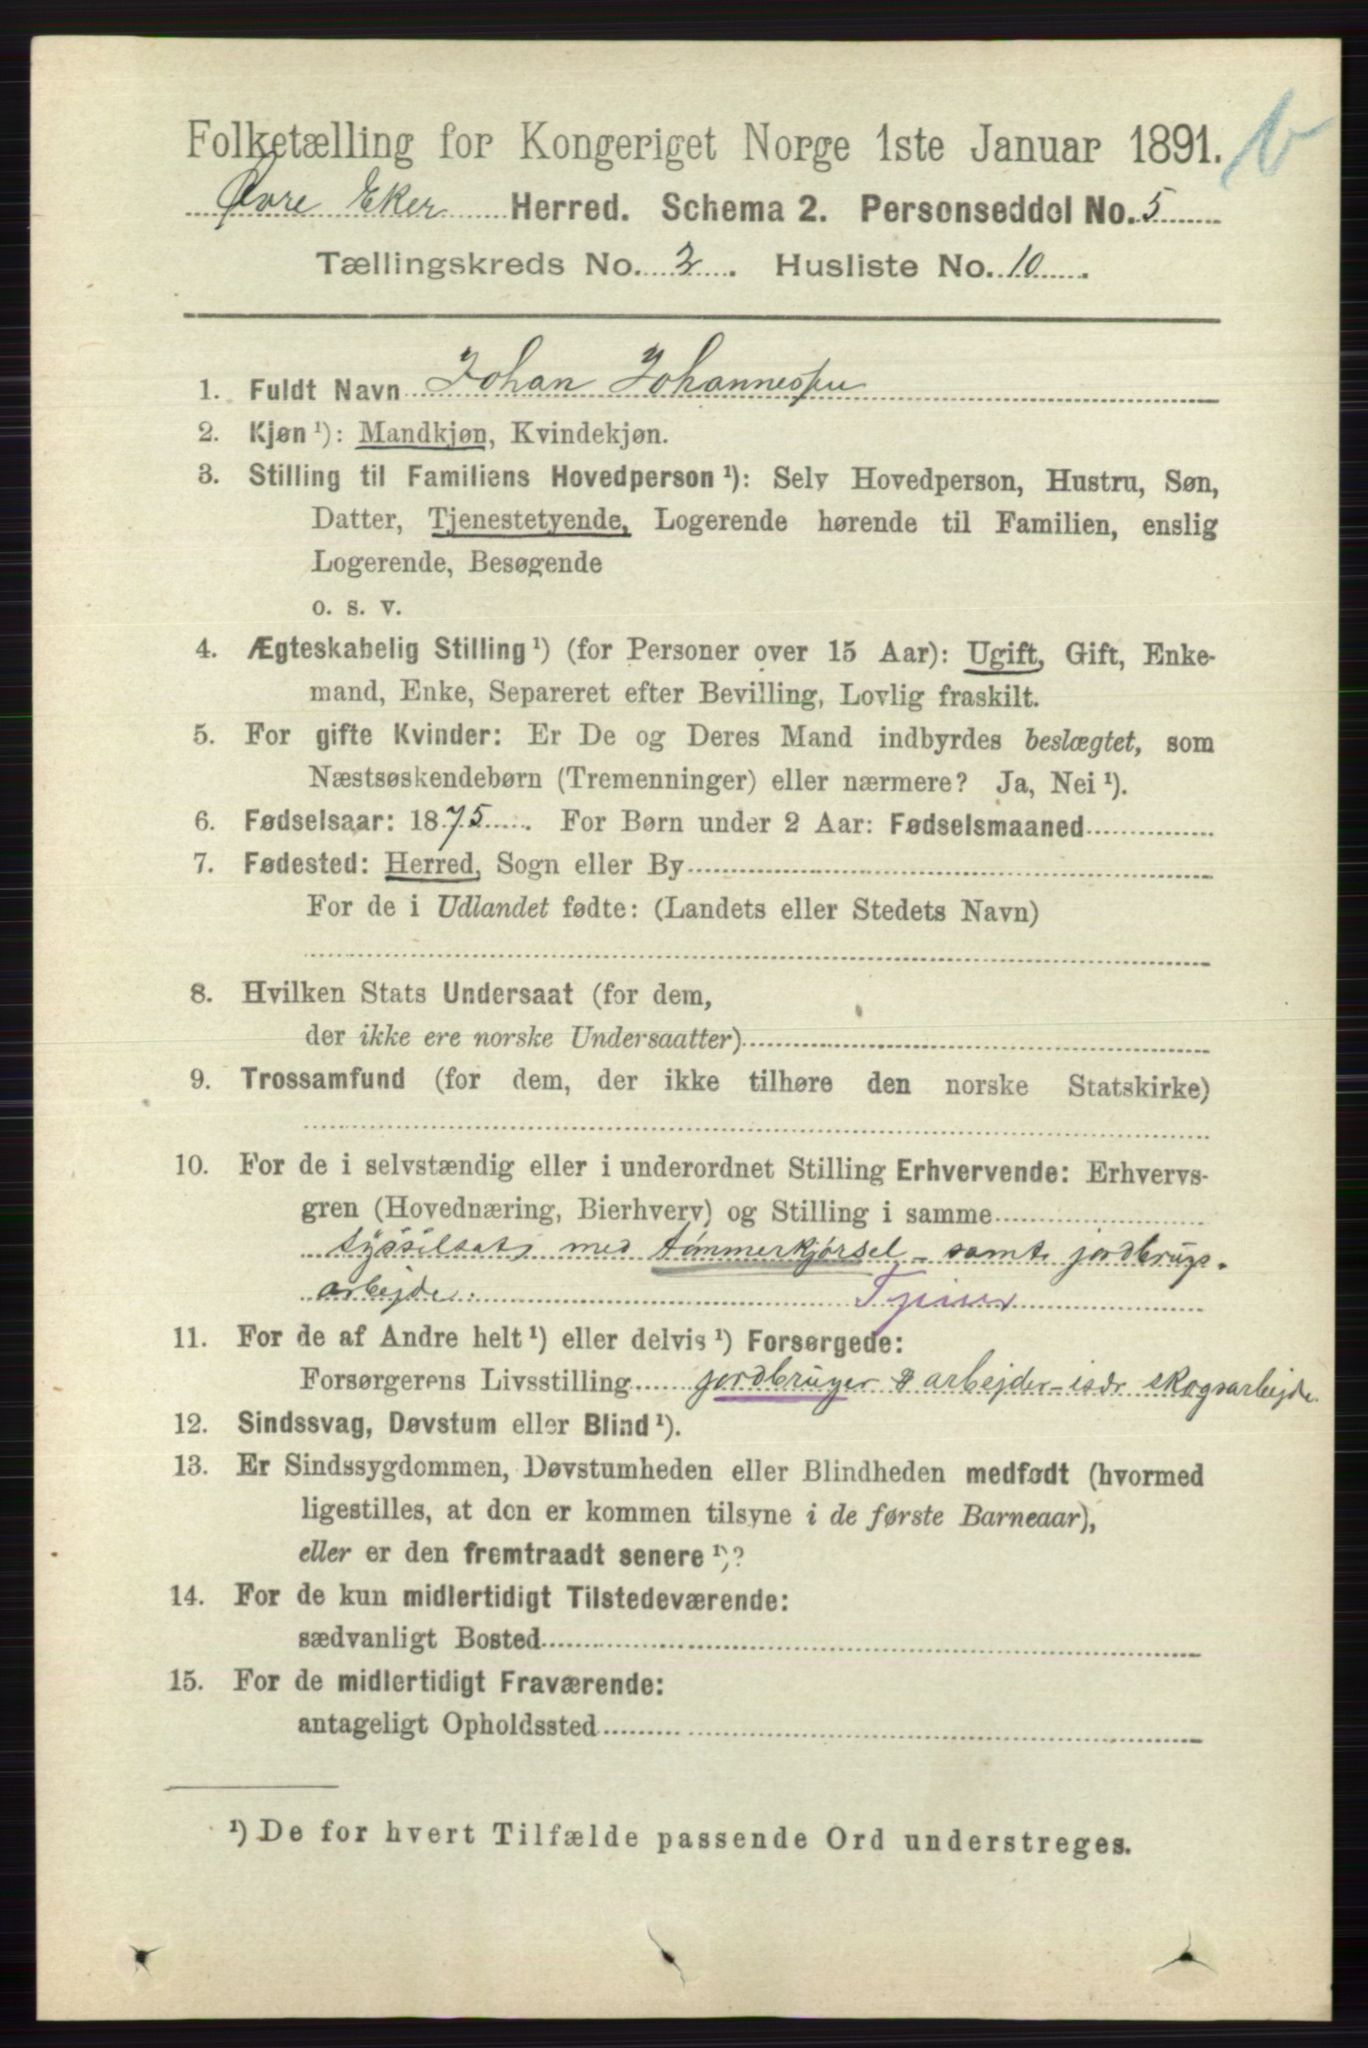 Folketælling for Kongeriget Norge 1ste Januar 1891.
Øvre Eker Herred. Schema 2. Personseddel No. 5
Tællingskreds No. 2. Husliste No. 10.
1. Fuldt Navn Johan Johannessen
2. Kjøn ¹): Mandkjøn, Kvindekjøn.
3. Stilling til Familiens Hovedperson ¹): Selv Hovedperson, Hustru, Søn,
Datter, Tjenestetyende, Logerende hørende til Familien, enslig
Logerende, Besøgende
o. s. v.
4. Ægteskabelig Stilling ¹) (for Personer over 15 Aar): Ugift, Gift, Enke-
mand, Enke, Separeret efter Bevilling, Lovlig fraskilt.
5. For gifte Kvinder: Er De og Deres Mand indbyrdes beslægtet, som
Næstsøskendebørn (Tremenninger) eller nærmere? Ja, Nei ¹).
6. Fødselsaar: 1875. For Børn under 2 Aar: Fødselsmaaned
7. Fødested: Herred, Sogn eller By
For de i Udlandet fødte: (Landets eller Stedets Navn)
8. Hvilken Stats Undersaat (for dem,
der ikke ere norske Undersaatter)
9. Trossamfund (for dem, der ikke tilhøre den norske Statskirke)
10. For de i selvstændig eller i underordnet Stilling Erhvervende: Erhvervs-
gren (Hovednæring, Bierhverv) og Stilling i samme
sysselsat med tømmerkjørsel - samt jordbrugs-
arbejde. Tjener
11. For de af Andre helt ¹) eller delvis ¹) Forsørgede:
Forsørgerens Livsstilling jordbruger & arbejder - især skogsarbejde.
12. Sindssvag, Døvstum eller Blind ¹).
13. Er Sindssygdommen, Døvstumheden eller Blindheden medfødt (hvormed
ligestilles, at den er kommen tilsyne i de første Barneaar),
eller er den fremtraadt senere ¹)?
14. For de kun midlertidigt Tilstedeværende:
sædvanligt Bosted
15. For de midlertidigt Fraværende:
antageligt Opholdssted
¹) De for hvert Tilfælde passende Ord understreges.